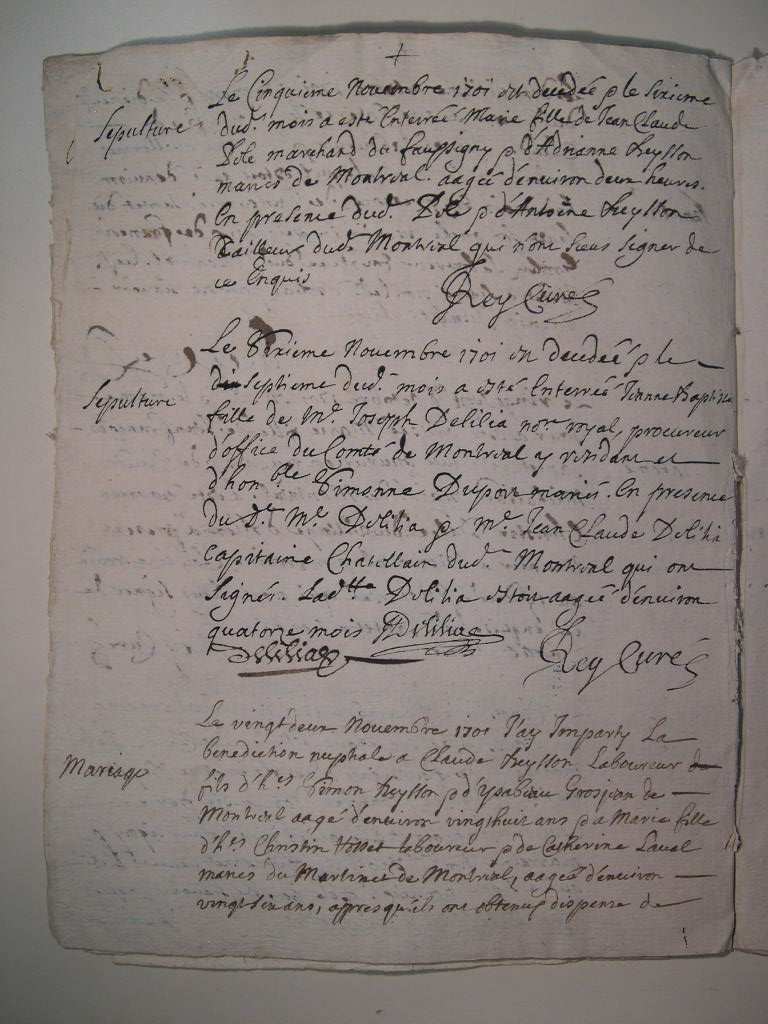 Sepulture
Le Cinquieme Novembre 1701 est decedée & le sixieme
dud. mois a esté Enterrée Marie fille de Jean Claude
marchand du faussigny & d'Adrianne Reysson
mariés de Montreal. aagée d'environ deux heures.
En presence dud. & d'Antoine Reysson
Tailleur dud. Montreal qui n'ont sceus signer de
ce Enquis
Rey Curé
Sepulture
Le Sixieme Novembre 1701 est decedée & le
septieme dud. mois a esté Enterrée Jeanne Baptiste
fille de Mr. Joseph Delilia nore royal, procureur
d'office du Comté de Montreal y residant et
d'honble Simonne Dupont mariés. En presence
du Dt. Mr. Delilia & Mr. Jean Claude Delilia
Capitaine Chatellain dud. Montreal qui ont
signés. Ladtte Delilia estoit aagée d'environ
quatorze mois Delilia
Delilia
Rey Curé
Mariage
Le vingt deux Novembre 1701 J'ay Imparty La
benediction nuptiale a Claude Reysson Laboureur
fils d'hes Simon Reysson & d'Ysabeau Grosjean de
Montreal aagé d'environ vingt huit ans & a Marie fille
d'hes Christin laboureur & de Catherine Laval
mariés du Martinet de Montreal, aagée d'environ
vingt six ans, appres qu'ils ont obtenus dispense de